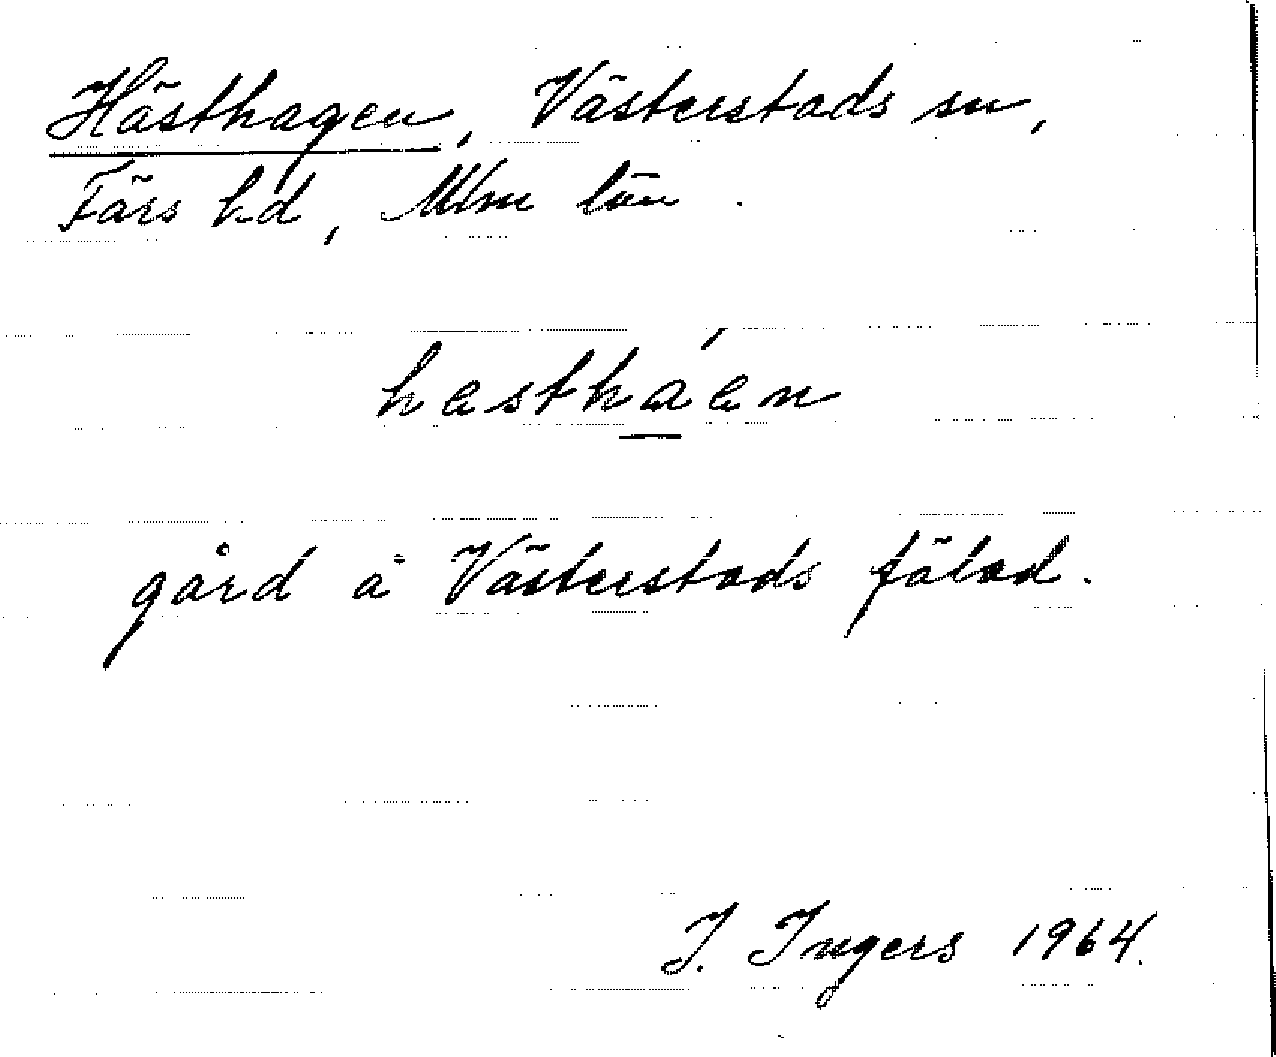 Hästhagen, Västerstads sn,
Färs hd, Mlm län.
hestha´en
gård å Västerstads fälad.
J. Ingers 1964.